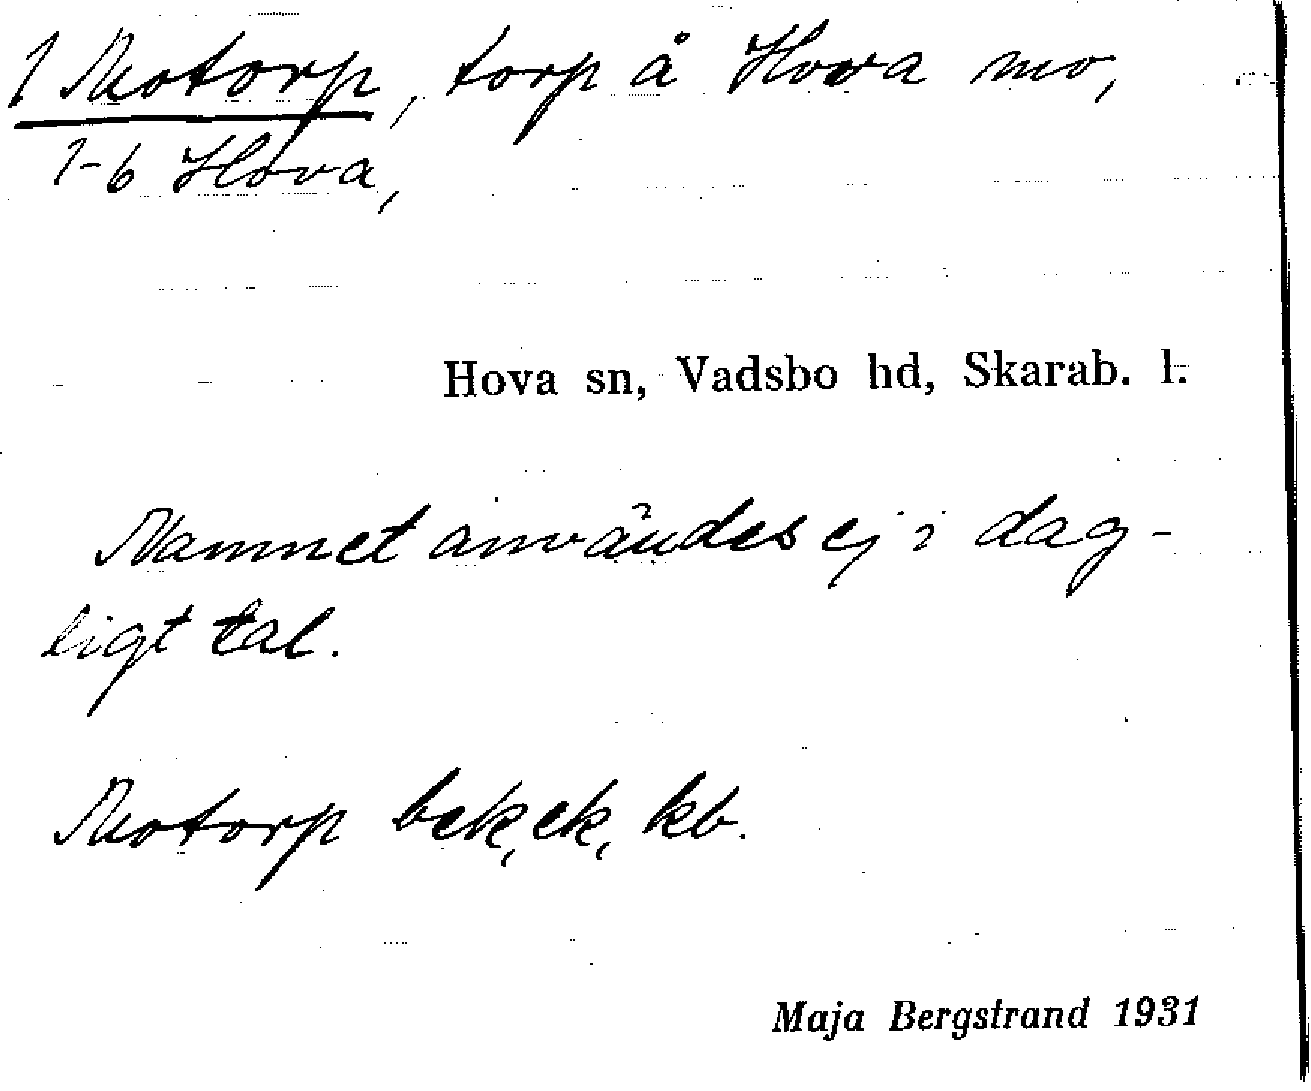 1 Motorp, torp å Hova mo,
1-6 Hova,
Hova sn, Vadsbo hd, Skarab. l.
Namnet användes ej i dag-
ligt tal.
Motorp bek, ek, kb.
Maja Bergstrand 1931